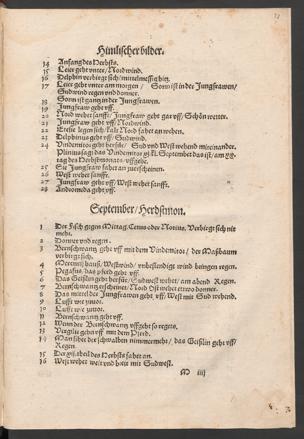 Himlischer bilder.
14 Anfang des Herbsts.
15 Leier geht vnter / Nordwind.
16 Delphin verbirgt sich / mittelmessig hin.
17 Leier geht vnter am morgen / Sonn ist in der Jungfrawen /
Südwind regen vnd donner.
18 Sonn ist gang in der Jungfrawen.
19 Jungfraw geht vff.
20 Nord wehet sanfft / Jungfraw geht gar vff / Schön wetter.
21 Jungfraw geht vff / Nordwind.
22 legen sich / kalt Nord fahet an wehen.
23 Delphinus geht vff / Südwind.
24 Vindemitor geht herfür / Süd vnd West wehend mit einander.
Plinius sagt das Vindemitor September das ist / am
tag des Herbstmonats / vffgehe.
25 Die Jungfraw fahet an zuerscheinen.
26 West wehet sanfft.
27 Jungfraw geht vff / West wehet sanfft.
28 Andromeda geht vff.
September / Herbstmon.
1 Der Fisch gegen Mittag, Cetus oder Notius, Verbirgt sich nit
mehr.
2 Donner vnd regen.
3 Bernschwang geht vff mit dem Vindemitor / der Maßbaum
verbirgt sich.
4 Meermüschauß / Westwind / vnbestendige wind bringen regen.
5 Pegasus, das pferd geht vff.
6 Das Geißlin geht herfür / Südwest wehet / am abend Regen.
7 Bernschwang erscheinet / Nord Ost wehet etwo donner.
8 Das mittel der Jungfrawen geht vff / West mit Süd wehend.
9 Lufft wie vnten.
10 Lufft wie vnten.
11 Bernschwang geht vff.
12 Wenn der Bernschwang vffgeht so regets.
13 geht vff mit dem Pferd.
14 Man sihet der schwalben nimmermehr / das Geißlin geht vff /
Regen.
15 theil des Herbsts fahet an.
16 West wehet weit vnd breit mit Südwest.
M iiij